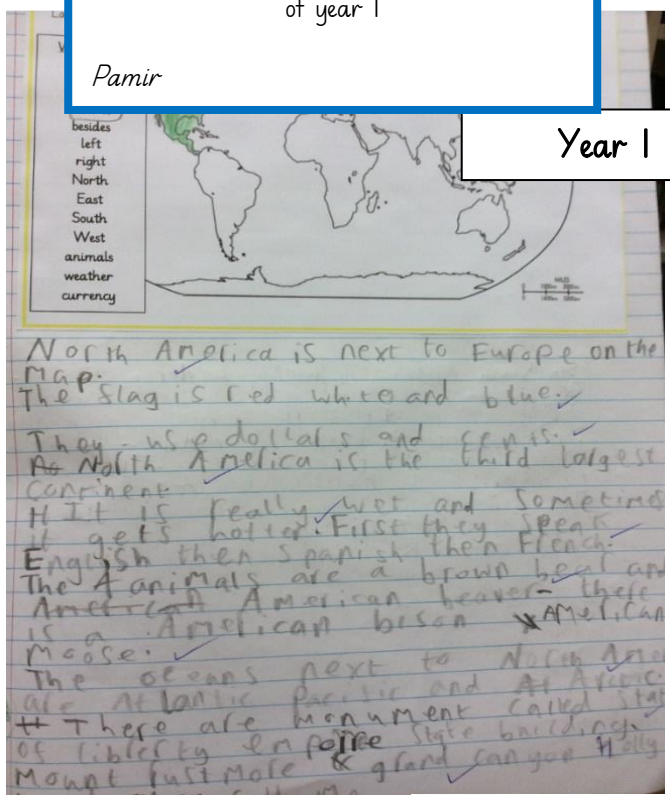 of year 1
Pamir
Year 1
besides
left
right
North
East
South
West
animals
weather
currency
MILES
North America is next to Europe on the
map.
The flag is red white and blue.
They use dollars and cents.
North America is the third largest
continent
H It is really wet and sometimes
it gets hotter. First they speak
English then Spanish then French.
The 4 animals are a brown bear and
American American beaver there
is a American bison American
moose.
The oceans next to North Ame
are Atlantic Pacific and At Arctic.
There are monument called Sta
of liberty empire state building.
Mount rustmore grand canyon Holly